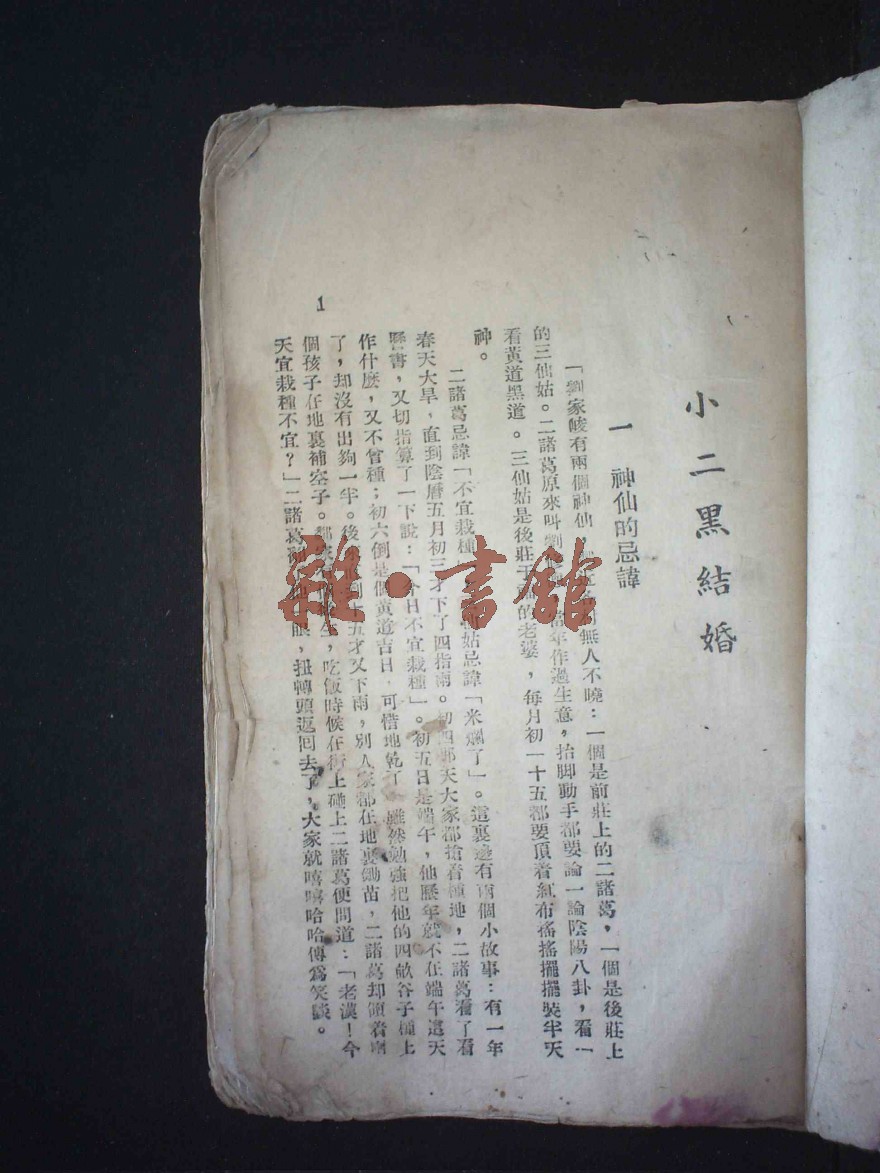 小二黑結婚
一　神仙的忌諱
「劉家峧有兩個神仙 無人不曉：一個是前莊上的二諸葛，一個是後莊上
的三仙姑。二諸葛原來叫劉 當年作過生意，抬脚動手都要論一論陰陽八卦，看一
看黃道黑道。三仙姑是後莊于 的老婆，每月初一十五都要頂着紅布搖搖擺擺裝半天
神。
二諸葛忌諱「不宜栽種 仙姑忌諱「米爛了」。這裏邊有兩個小故事：有一年
春天大旱，直到陰曆五月初三才下了四指雨。初四那天大家都搶着種地，二諸葛看了看
曆書，又切指算了一下說：「今日不宜栽種」。初五日是端午，他歷年就不在端午這天
作什麽，又不曾種；初六倒是個黃道吉日，可惜地乾了，雖然勉強把他的四畝谷子種上
了，却沒有出夠一半。後 到十五才又下雨，別人家都在地裏鋤苗，二諸葛却領着兩
個孩子在地裏補空子。鄰家 ，吃飯時候在街上碰上二諸葛便問道：「老漢！今
天宜栽種不宜？」二諸葛 眼，扭轉頭返回去了，大家就嘻嘻哈哈傳爲笑談。
1
雜·書館